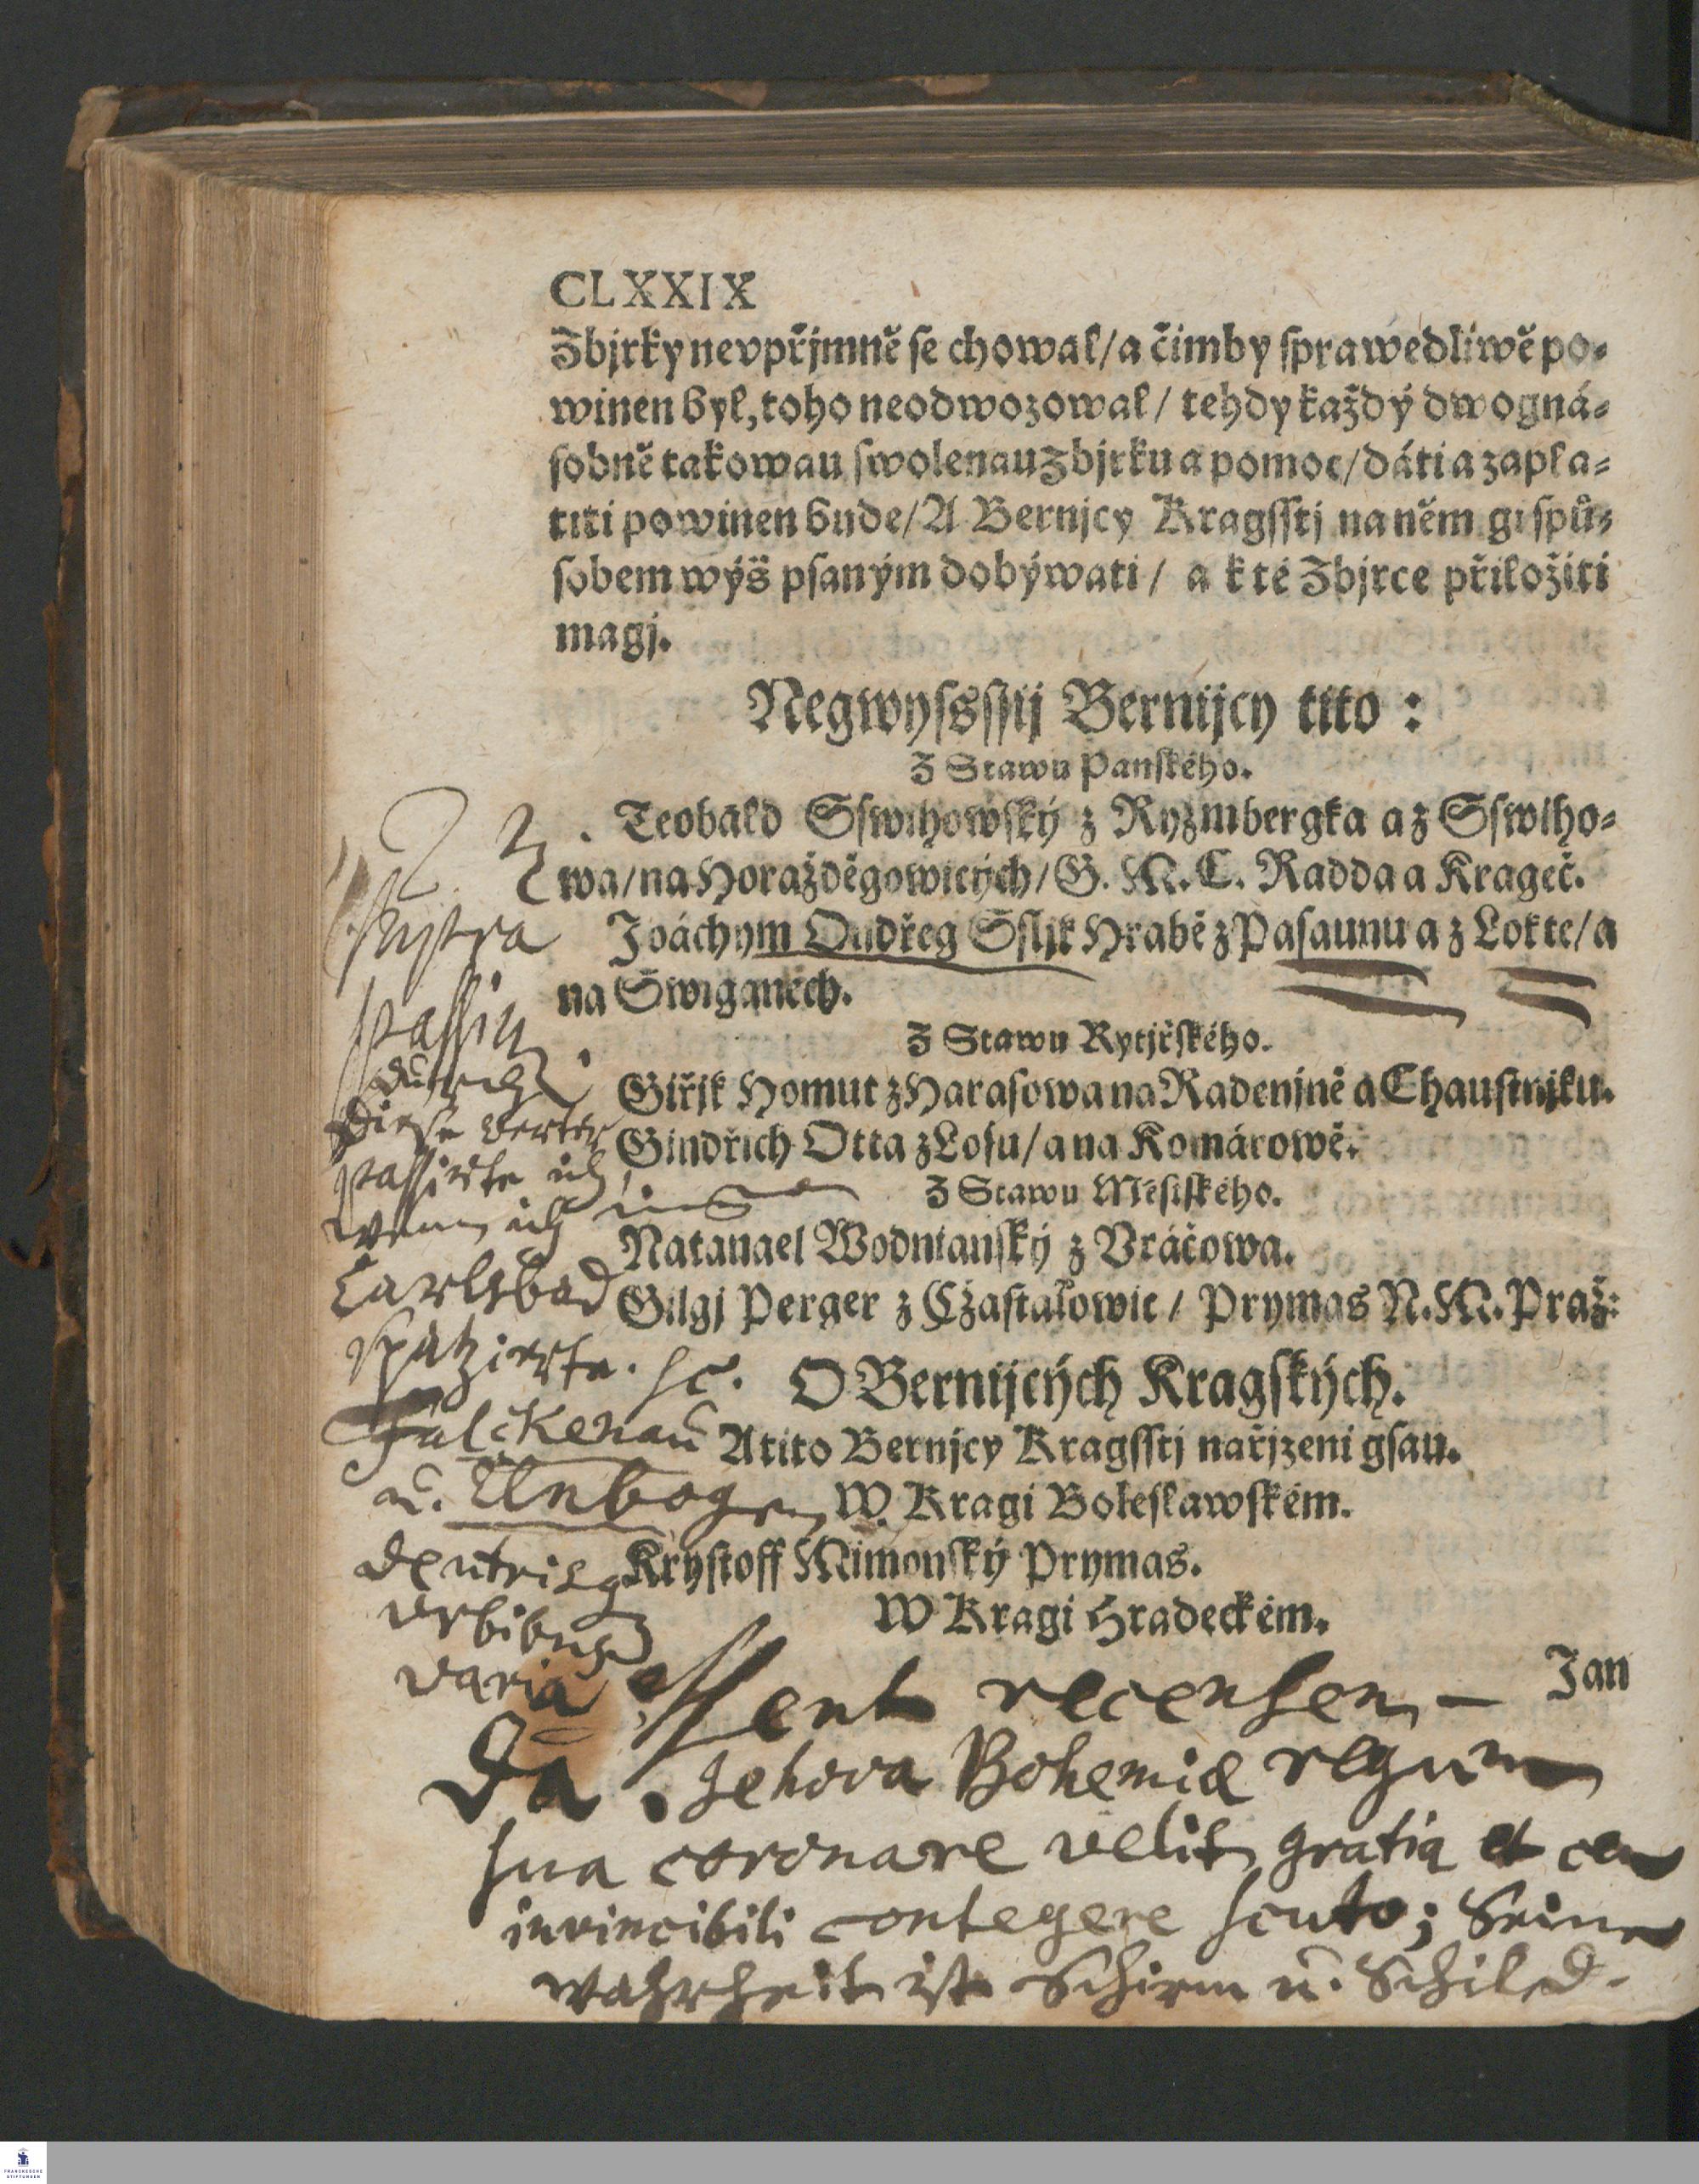 CLXXIX
Zbjrky nevpřjmně se chowal/ a čimby sprawedliwě po-
winen byl, toho neodwozowal/ tehdy každý dwogná-
sobně takowau swolenau Zbjrku a pomoc/ dáti a zapla-
titi powinen bude/ A Bernjcy Kragsstj na něm gi spů-
sobem wýš psaným dobýwati/ a k té Zbjrce přiložiti
magj.
Negwyssstij Bernijcy tito :
Z Stawu Panského.
Teobald Sswihowský z Ryzmbergka a z Sswiho-
wa/ na Horažděgowicých/ G. M. C. Radda a Krageč.
Joáchym Ondřeg Ssljk Hrabě z Pasaunu a z Lokte/ a
na Swiganech.
Z Stawu Rytjřského.
Giřjk Homut z Harasowa na Radenjně a Chaustnjku.
Gindřich Otta z Losu/ a na Komárowě.
Z Stawu Městského.
Natanael Wodnianský z Vráčowa.
Gilgj Perger z Cžastalowic/ Prymas N. M. Praž:
O Bernijcých Kragských.
A tito Bernjcy Kragsstj nařjzeni gsau.
W Kragi Boleslawském.
Krystoff Mimonský Prymas.
W Kragi Hradeckém.
Jan
passin
durch
diese Oerter
passirte ich,
wenn ich ins
Carlsbad
spatzierte. sc.
Falckenau
u. Elnbogen
de utrisq
urbibus
varia essent recensen-
da. Jehova Bohemiæ regnum
sua coronare velit gratia et ceu
invincibili contegere scuto; Seine
Wahrheit ist Schirm u. Schild.